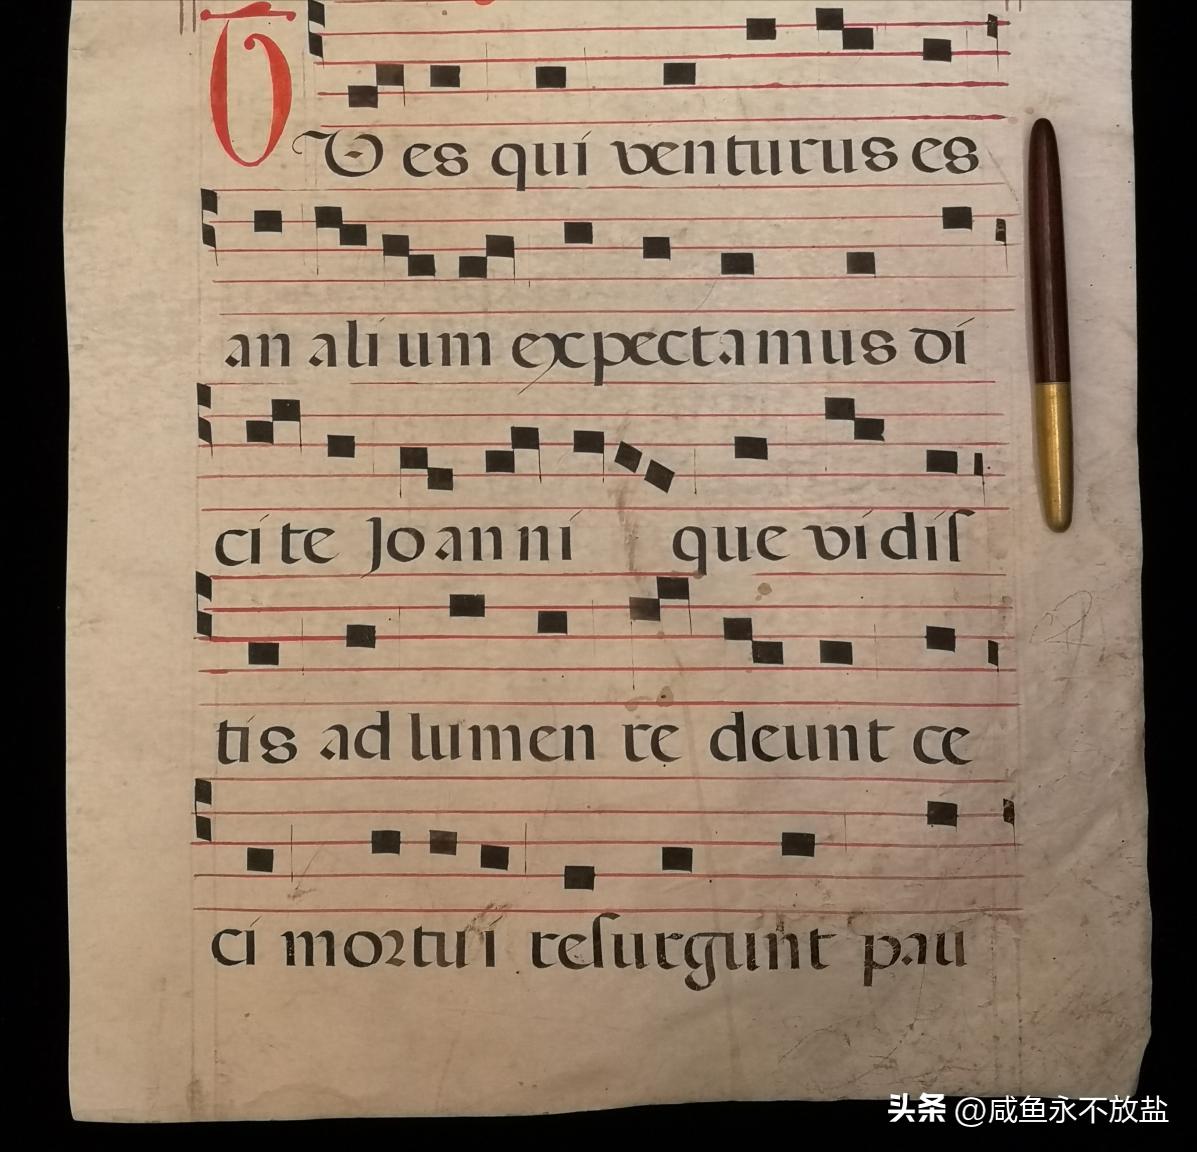 TU es qui venturus es
an ali um expectamus di
cite Joanni que vidis
tis ad lumen re deunt ce
ci mortui resurgunt pau
头条 @咸鱼永不放盐